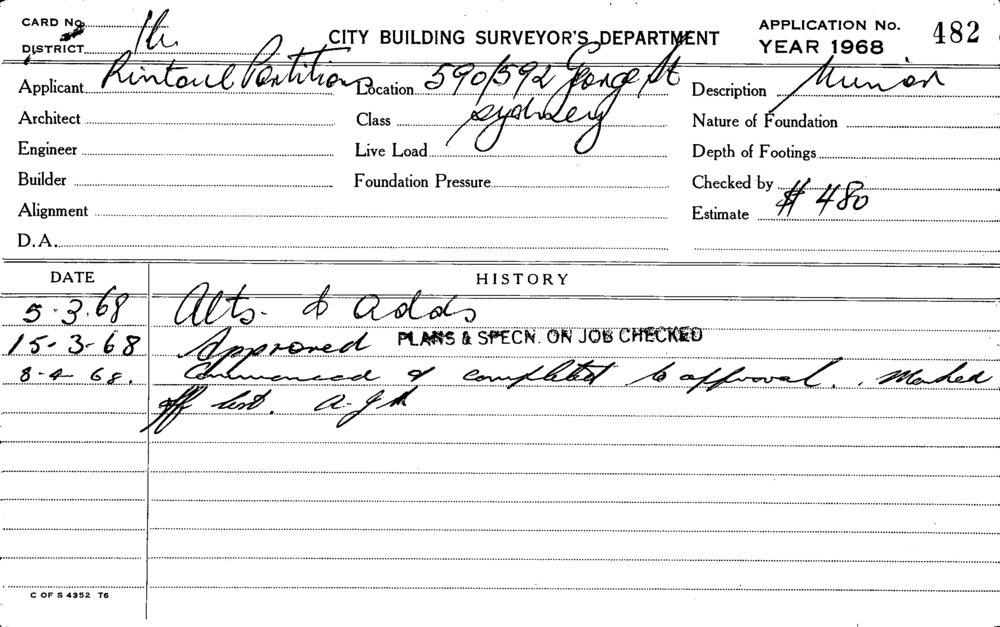 CARD No. CITY BUILDING SURVEYOR'S DEPARTMENT APPLICATION No. 482
DISTRICT YEAR 1968
Applicant Rintoul Partitions Location 590/592 George St Description
Sydney
Architect Class Nature of Foundation
Engineer Live Load Depth of Footings
Builder Foundation Pressure Checked by
Alignment Estimate $480
D.A.
DATE HISTORY
5.3.68 Alts. & adds
15-3-68 Approved PLANS & SPECN. ON JOB CHECKED
8-4-68. Commenced & completed to approval. Marked
off list.
C OF S 4352 T6